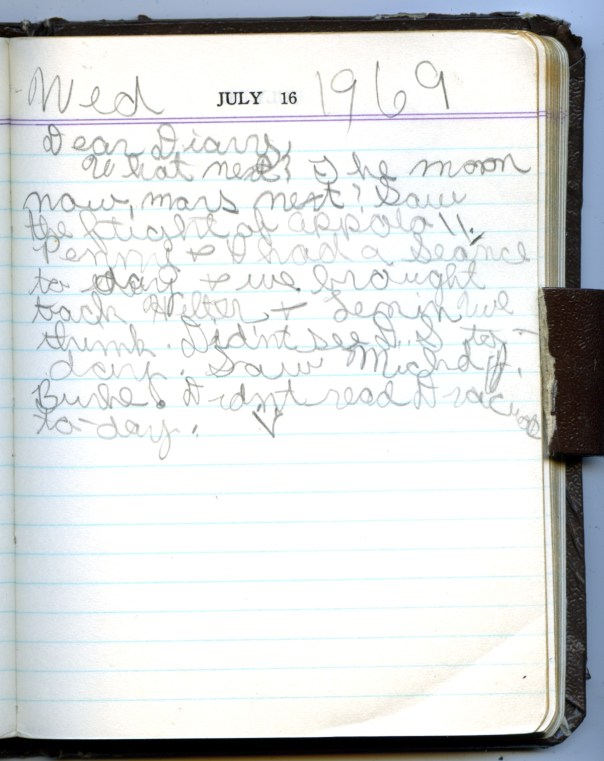 Wed JULY 16 1969
Dear Diary,
What next? The moon
now, mars next? Saw
the flight of appolo 11.
Penny & I had a Seance
to day & we brought
back Hilter &
think. Didn't see D. S to-
day. Saw
Burke. Didn't read Dracula
to-day.